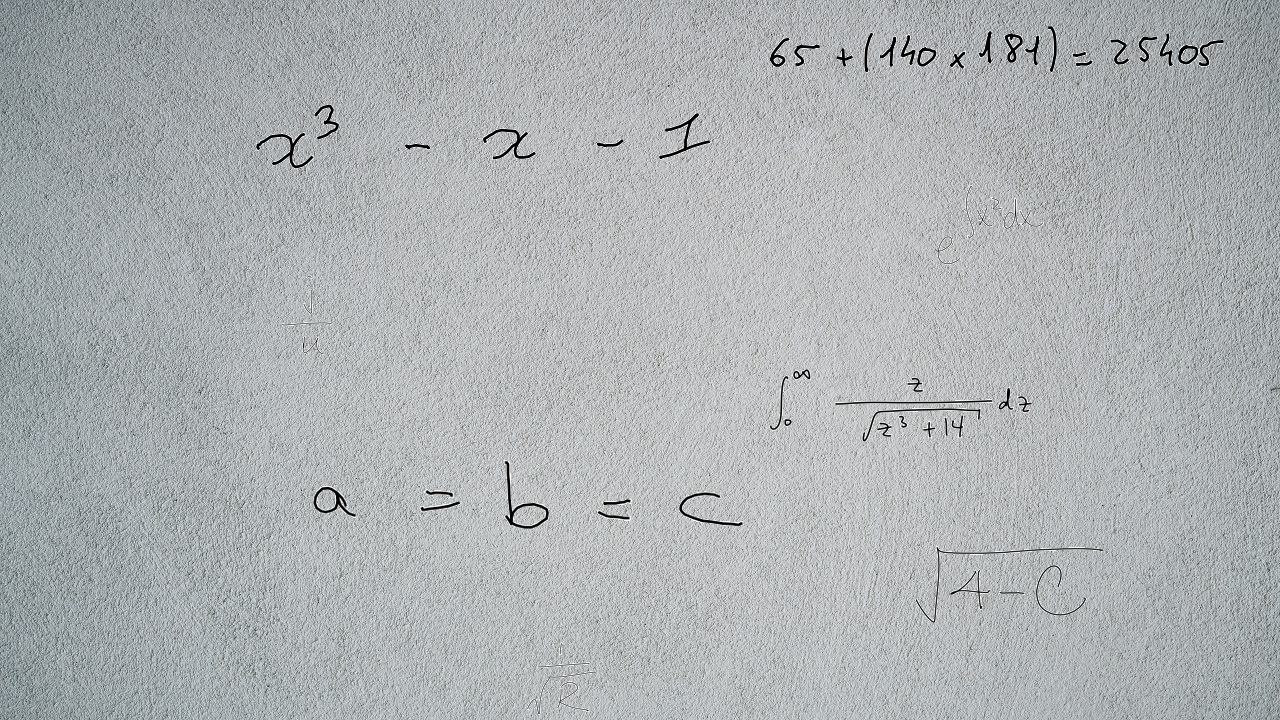 65 + (140 × 181) = 25405
x³ - x - 1
e^{∫x²dx}
1/u
∫₀^∞ z/√(z³ + 14) dz
a = b = c
√(4 - C)
1/√R